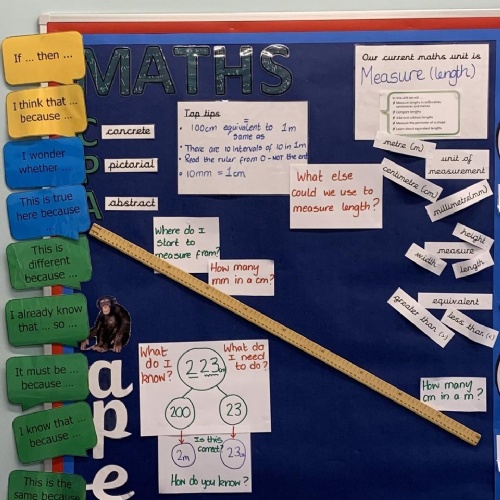 If ... then ...
I think that ...
because ...
I wonder
whether ...
This is true
here because
...
This is
different
because ...
I already know
that ... so ...
It must be ...
because ...
I know that ...
because ...
This is the
same because
MATHS
C
P
A
concrete
pictorial
abstract
Top tips
100cm equivalent to 1m
=
same as
There are 10 intervals of 10 in 1m
Read the ruler from 0 - not the end
10mm = 1cm
Our current maths unit is
Measure (length)
What else
could we use to
measure length?
metre (m)
unit of
measurement
centimetre (cm)
millimetre (mm)
height
measure
width
length
equivalent
greater than (>)
less than (<)
Where do I
start to
measure from?
How many
mm in a cm?
How many
cm in a m?
What
do I
know?
What do
I need
to do?
223cm
200
23
Is this
correct?
2m
23cm
How do you know?
ape